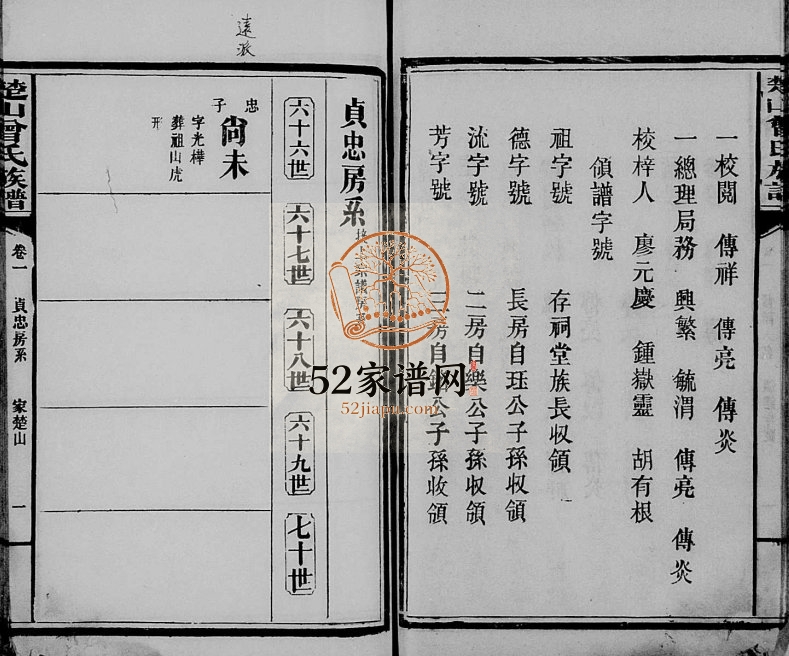 楚山曾氏族譜
一校閱　傳祥　傳亮　傳炎
一總理局務　興繁　毓渭　傳亮　傳炎
校梓人　廖元慶　鍾嶽靈　胡有根
領譜字號
祖字號　存祠堂族長収領
德字號　長房自珏公子孫収領
流字號　二房自樂公子孫收領
芳字號　三房自公子孫收領
貞忠房系
六十六世　六十七世　六十八世　六十九世　七十世
忠子
尙未
字光樺
葬祖山虎
形
遠派
楚山曾氏族譜
卷一　貞忠房系　家楚山　一
52家谱网
52jiapu.com